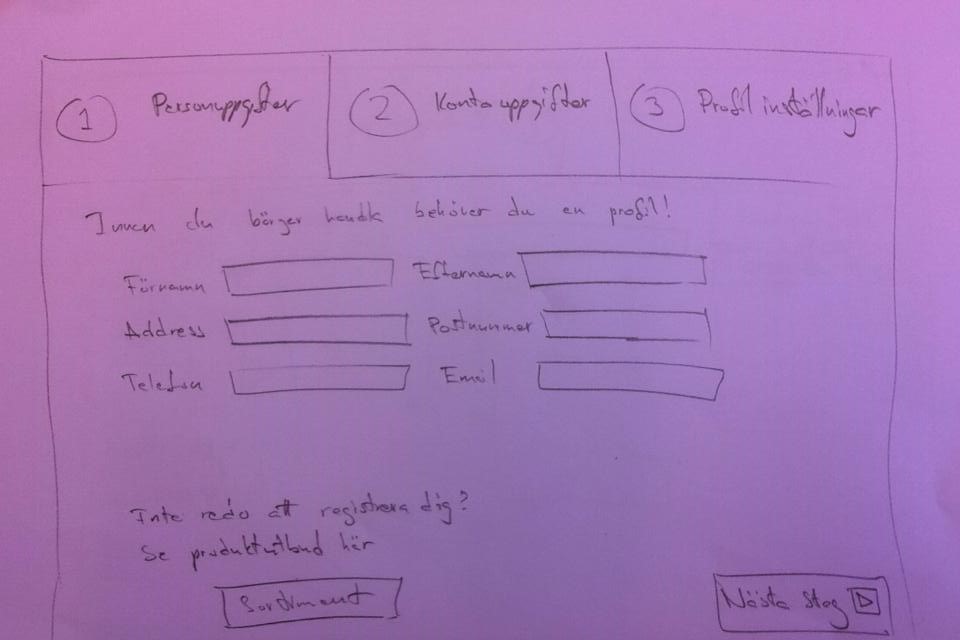 1 Personuppgifter 2 Kontouppgifter 3 Profil inställningar
Innan du börger handla behöver du en profil!
Förnamn Efternamn
Address Postnummer
Telefon Email
Inte redo att registrera dig?
Se produktutbud här
Sortiment Nästa steg